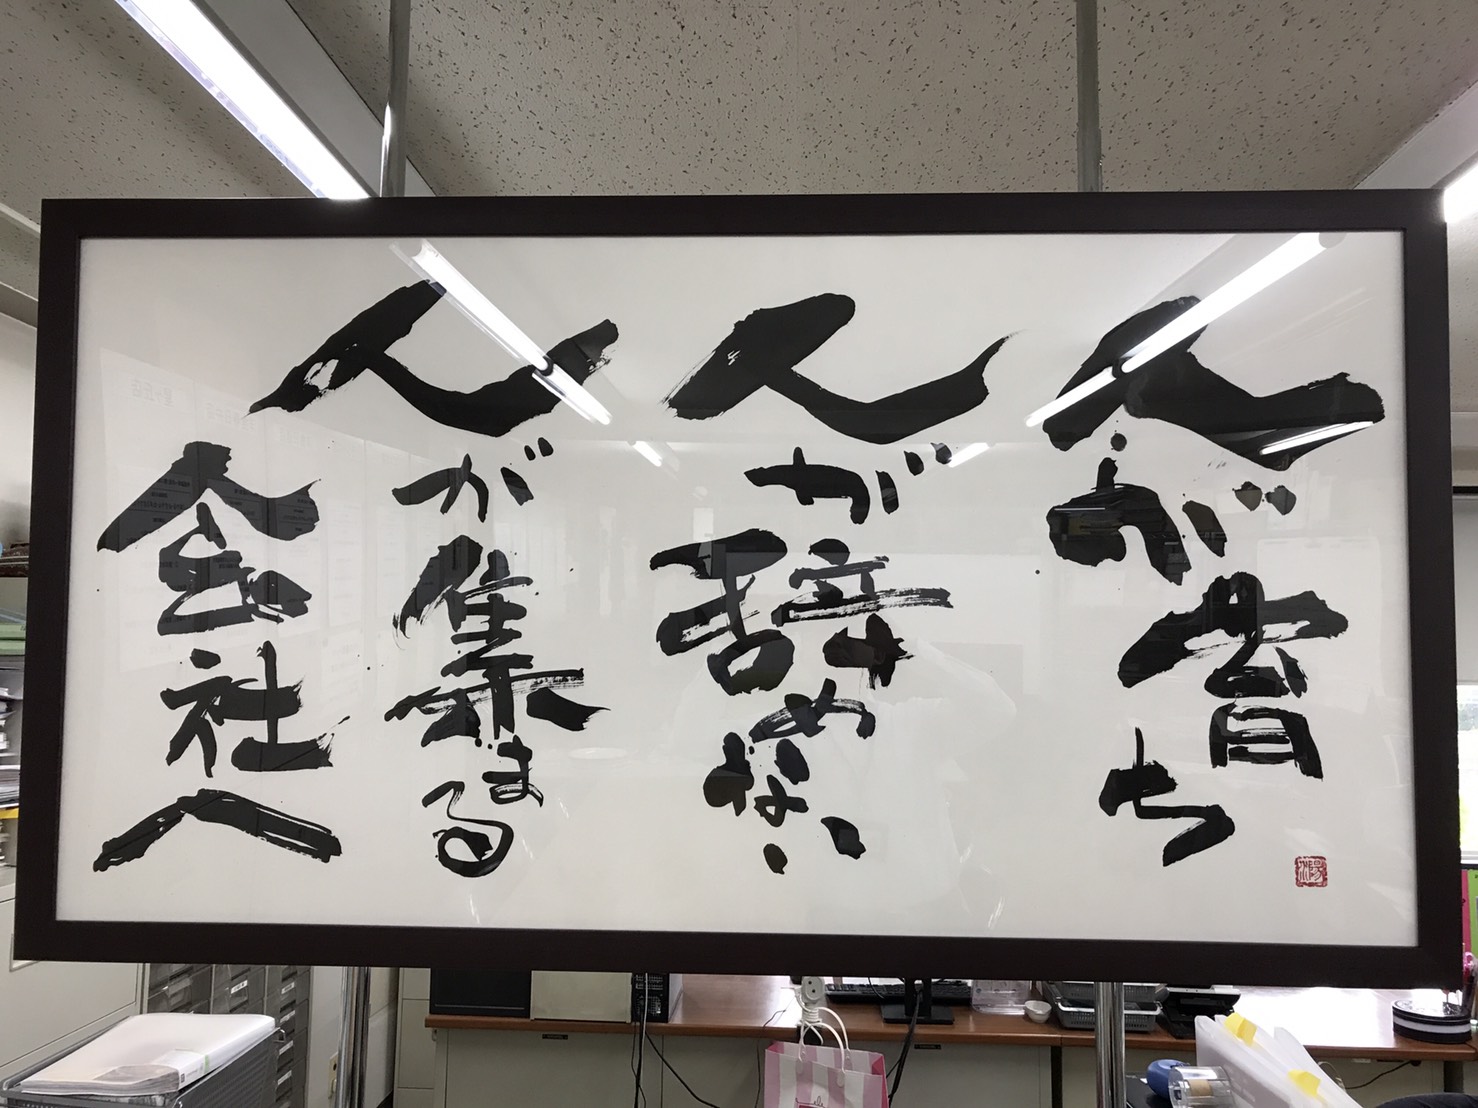 人が育ち
人が辞めない
人が集まる
会社へ